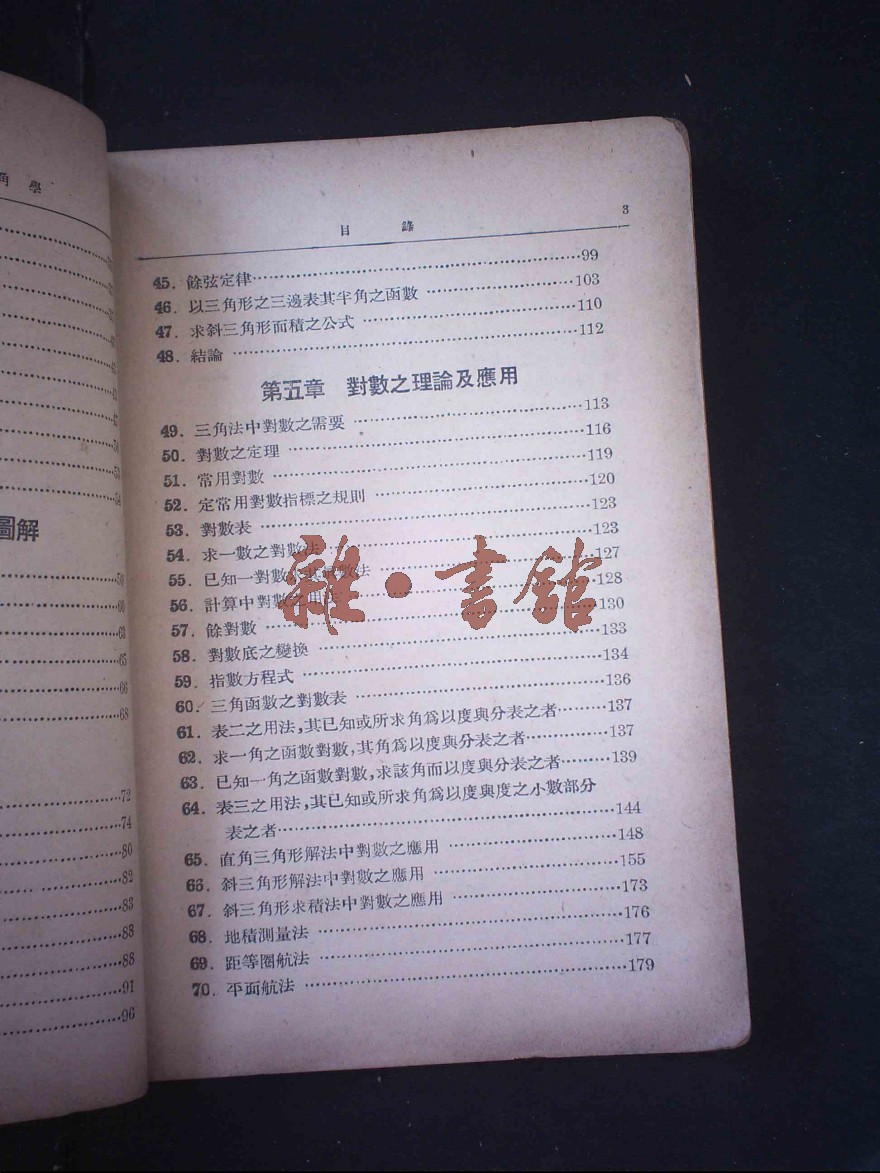 角學
圖解
50
60
63
65
66
68
72
74
80
82
83
88
88
91
96
目錄 3
45. 餘弦定律 99
46. 以三角形之三邊表其半角之函數 103
47. 求斜三角形面積之公式 110
48. 結論 112
第五章 對數之理論及應用
49. 三角法中對數之需要 113
50. 對數之定理 116
51. 常用對數 119
52. 定常用對數指標之規則 120
53. 對數表 123
54. 求一數之對數法 123
55. 已知一對數求其眞數法 127
56. 計算中對數之用法 128
57. 餘對數 130
58. 對數底之變換 133
59. 指數方程式 134
60. 三角函數之對數表 136
61. 表二之用法,其已知或所求角爲以度與分表之者 137
62. 求一角之函數對數,其角爲以度與分表之者 137
63. 已知一角之函數對數,求該角而以度與分表之者 139
64. 表三之用法,其已知或所求角爲以度與度之小數部分
表之者 144
65. 直角三角形解法中對數之應用 148
66. 斜三角形解法中對數之應用 155
67. 斜三角形求積法中對數之應用 173
68. 地積測量法 176
69. 距等圈航法 177
70. 平面航法 179
雜·書館